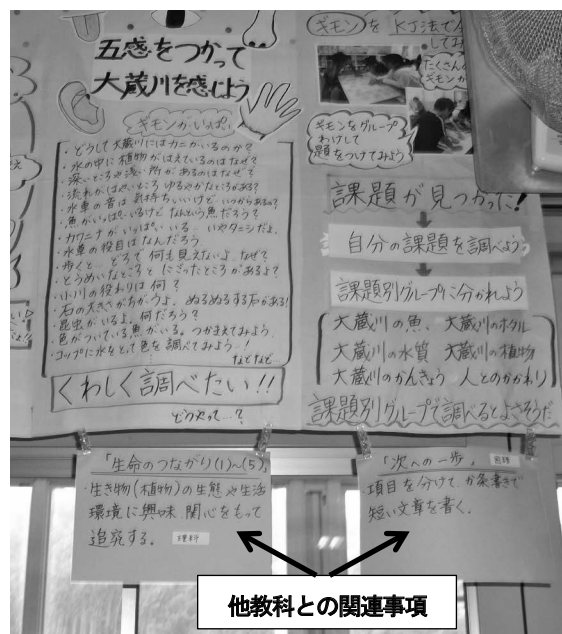 五感をつかって
大蔵川を感じよう
ギモンがいっぱい
・どうして大蔵川にはカニがいるのか?
・水の中に植物がはえているのはなぜ?
・深いところや浅い所があるのはなぜで
・流れがはやいところ ゆるやかなところがある?
・水車の音は気持ちいいけど、いつからあるの?
・魚がいっぱいいるけど なんという魚だろう?
・カワニナがいっぱいいる。 いやタニシだよ。
・水車の役目はなんだろう
・歩くと どろで何も見えないよ なぜ?
・とうめいなところと にごったところがあるよ?
・小川の役わりは何?
・石の大きさがちがうよ、ぬるぬるする石がある!
・昆虫がいるよ、何だろう?
・色がついている魚がいる。つかまえてみよう
・コップに水をとって色を調べてみよう!
などなど
くわしく調べたい!!
どうやって…?
ギモンを KJ法で
たくさん
ギモンが
ギモンをグループ
わけして
題をつけてみよう
課題が見つかった!
自分の課題を調べよう
課題別グループに分かれよう
大蔵川の魚、大蔵川のホタル
大蔵川の水質 大蔵川の植物
大蔵川のかんきょう 人とのかかわり
課題別グループで調べるとよさそうだ
「生命のつながり(1)~(5)」
・生き物(植物)の生態や生活
環境に興味 関心をもって
追究する。 理科
「次への一歩」 国語
項目を分けて、か条書きで
短い文章を書く。
他教科との関連事項